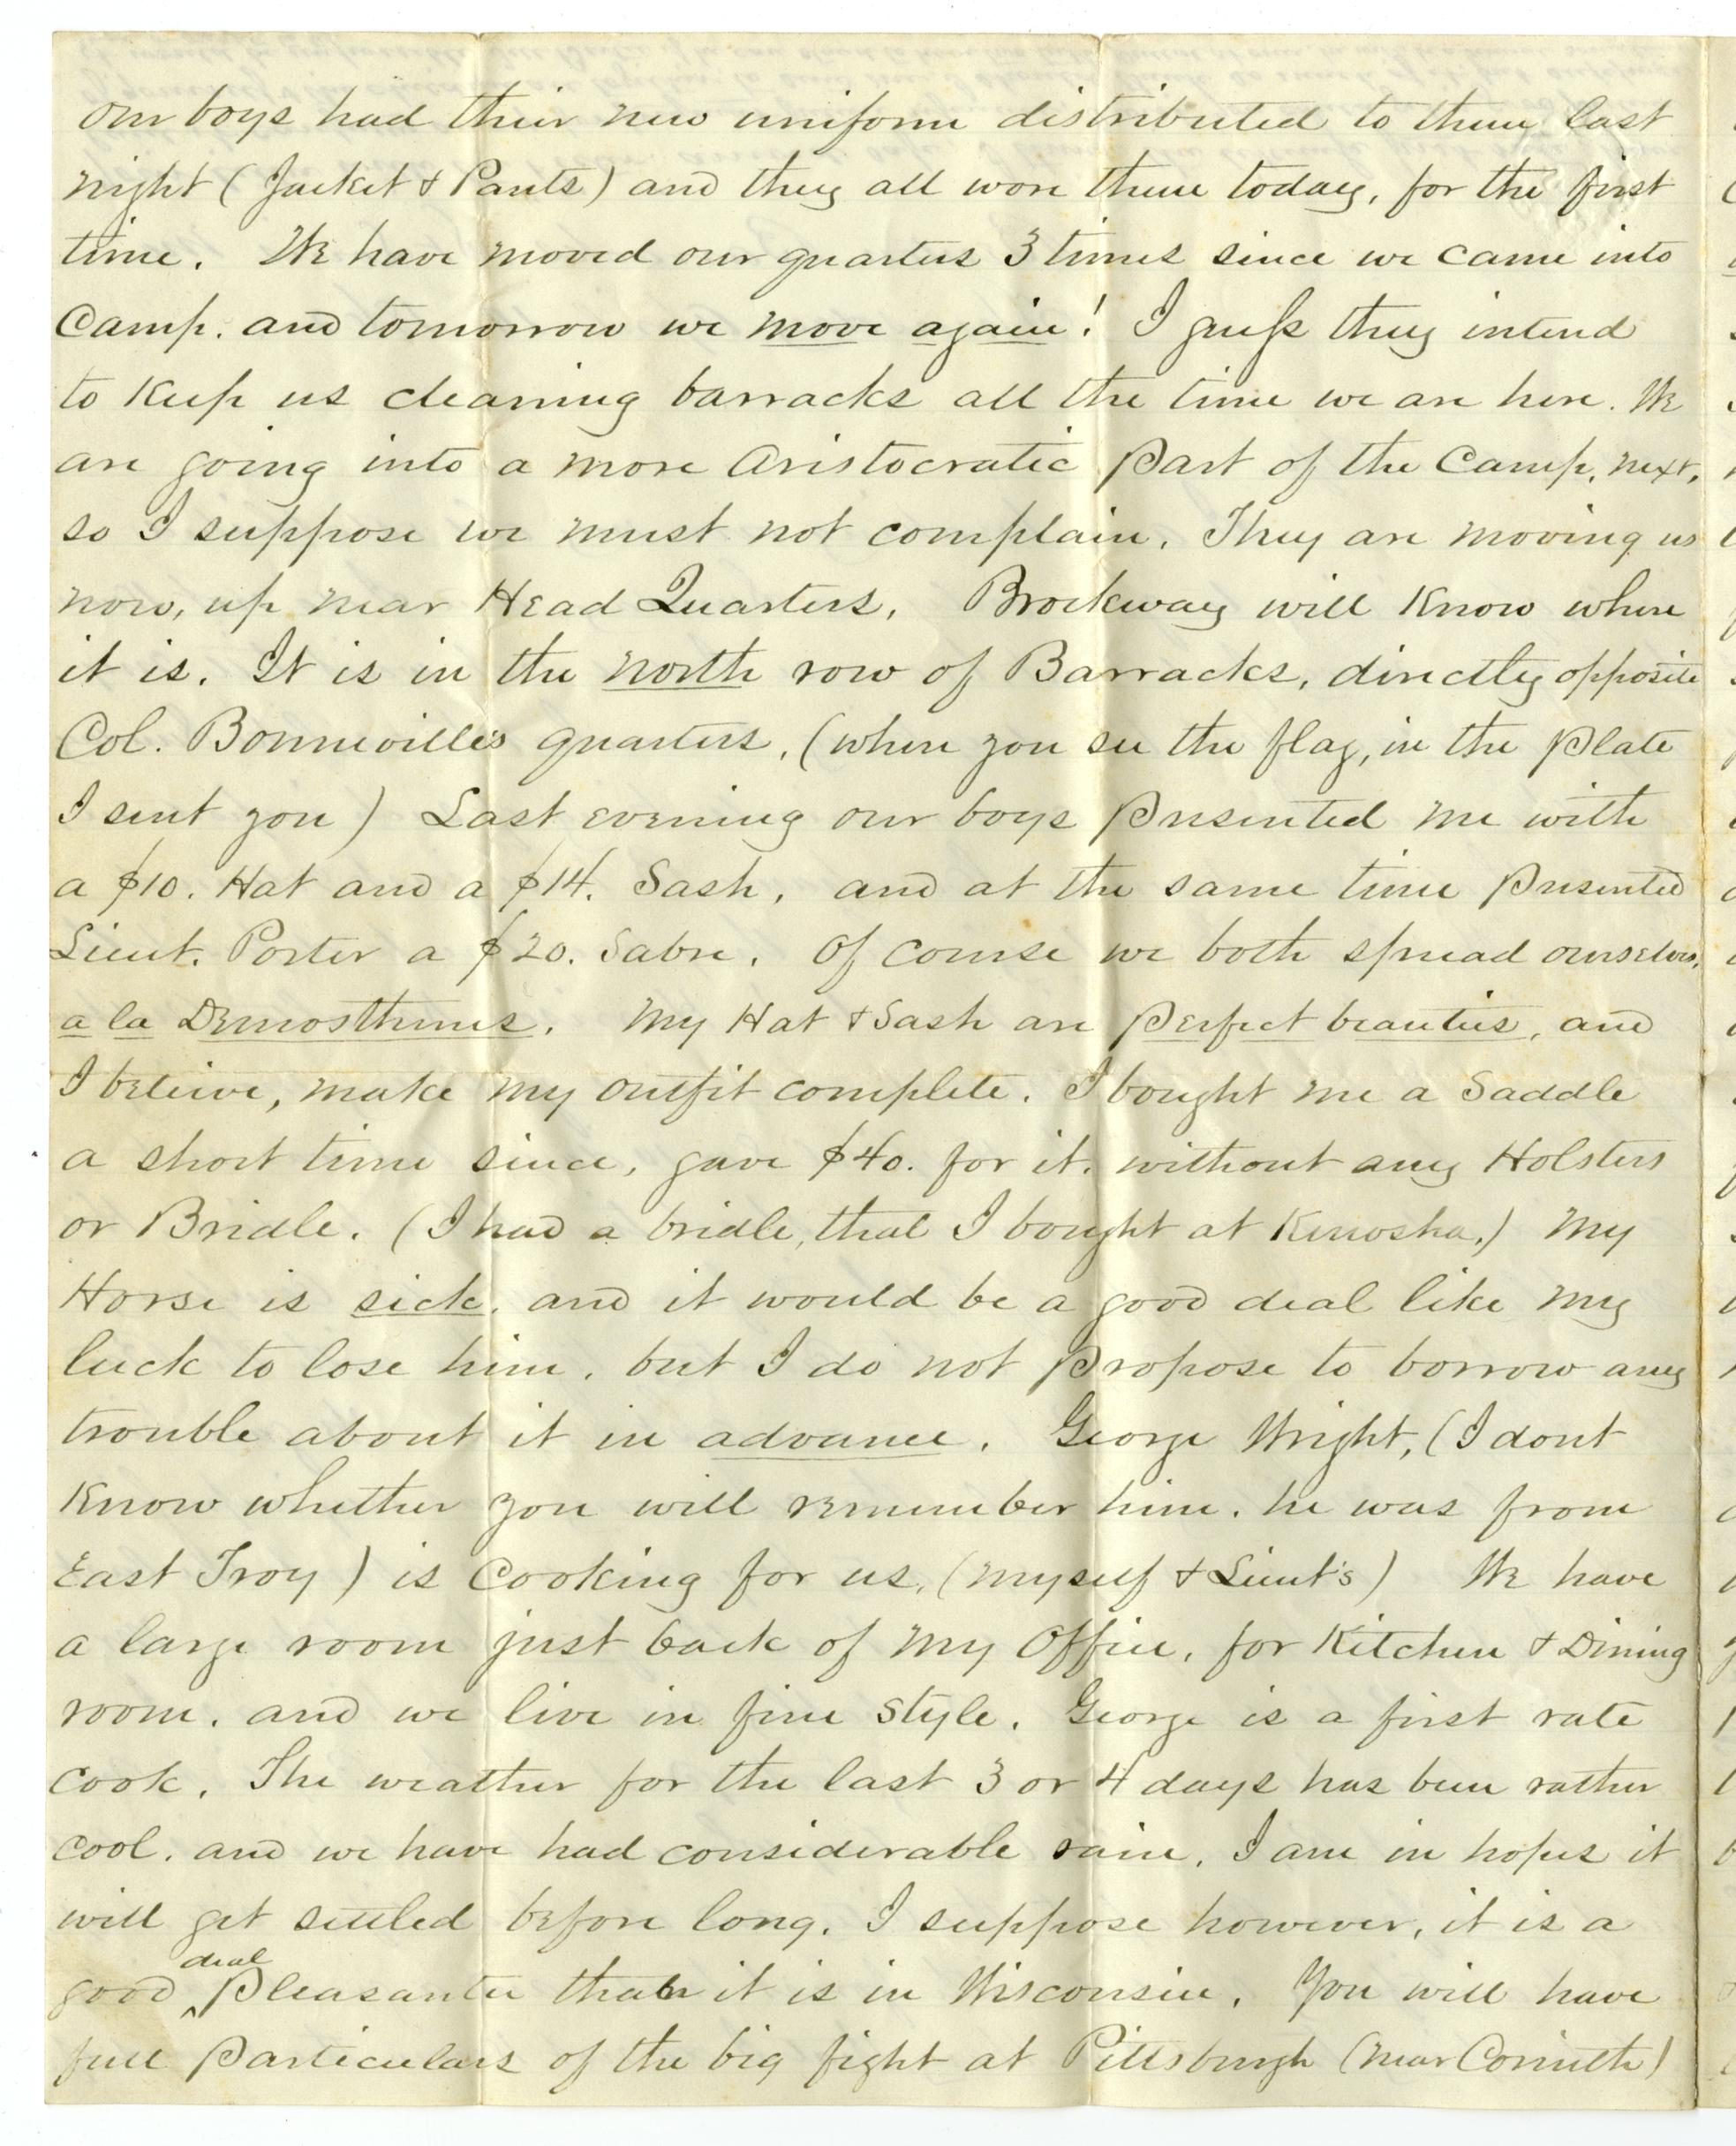 Our boys had their new uniform distributed to them last
night (Jacket & Pants) and they all wore them today, for the first
time. We have moved our quarters 3 times since we came into
Camp. and tomorrow we move again! I guess they intend
to Keep us cleaning barracks all the time we are here. We
are going into a more Aristocratic part of the Camp, next,
so I suppose we must not complain. They are moving us
now, up near Head Quarters. Brockway will Know where
it is. It is in the north row of Barracks, directly opposite
Col. Bonneville's quarters, (where you see the flag, in the plate
I sent you) Last evening our boys presented me with
a $10. Hat and a $14. Sash, and at the same time presented
Lieut. Porter a $20. Sabre. Of course we both spread ourselves.
a la Demosthenes. My Hat & Sash are perfect beauties, and
I beleive, make my outfit complete. I bought me a Saddle
a short time since, gave $40. for it. without any Holsters
or Bridle. (I had a bridle, that I bought at Kenosha.) My
Horse is sick, and it would be a good deal like my
luck to lose him, but I do not propose to borrow any
trouble about it in advance. George Wright, (I dont
Know whether you will remember him. he was from
East Troy) is Cooking for us, (myself & Lieut's) We have
a large room just back of my Office, for Kitchen & Dining
room, and we live in fine style. George is a first rate
cook. The weather for the last 3 or 4 days has been rather
cool, and we have had considerable rain. I am in hopes it
will get settled before long. I suppose however, it is a
good deal pleasanter than it is in Wisconsin. You will have
full particulars of the big fight at Pittsburgh (near Corinth)